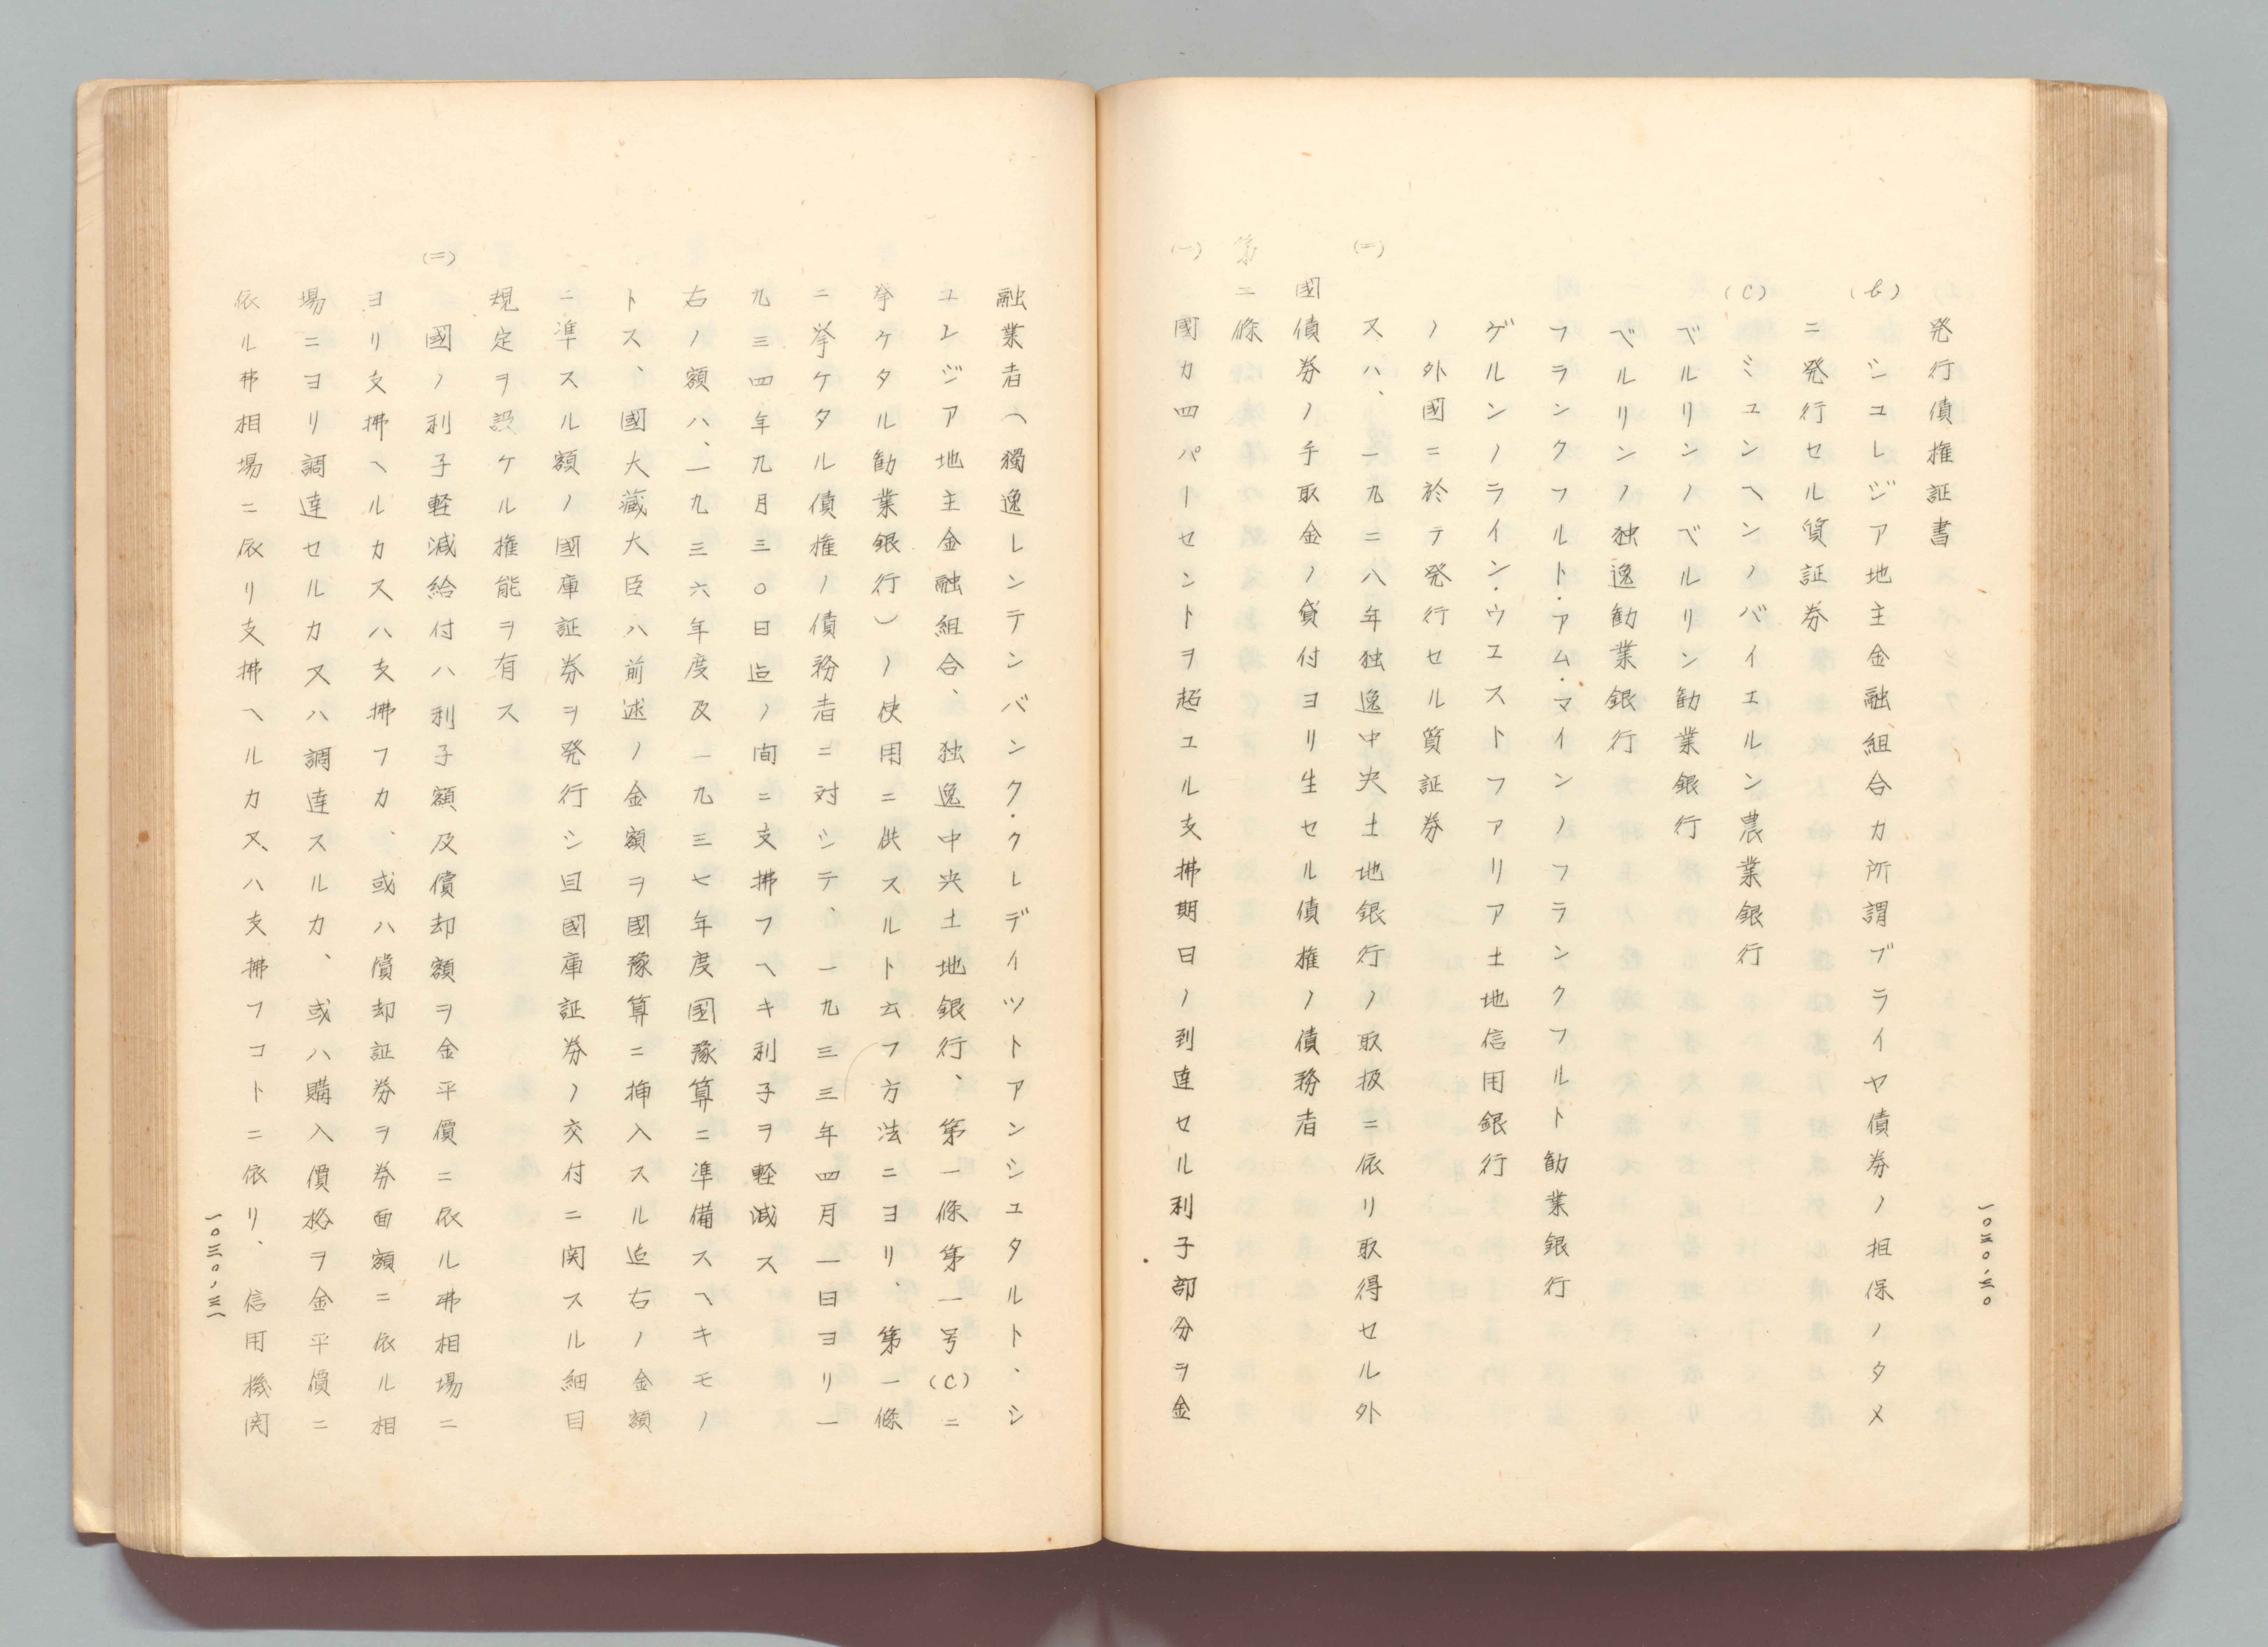 発行債権証書
(b) シユレジア地主金融組合カ所謂ブライヤ債券ノ担保ノタメ
ニ発行セル質証券
(C) ミユンヘンノバイエルン農業銀行
ベルリンノベルリン勧業銀行
ベルリンノ独逸勧業銀行
フランクフルト・アム・マインノフランクフルト勧業銀行
ゲルンノライン・ウエストフアリア土地信用銀行
ノ外國ニ於テ発行セル質証券
(二) 又ハ、一九二八年独逸中央土地銀行ノ取扱ニ依リ取得セル外
國債券ノ手取金ノ貸付ヨリ生セル債権ノ債務者
第二條
(一) 國カ四パーセントヲ超ユル支拂期日ノ到達セル利子部分ヲ金
一〇三〇、三〇
融業者(獨逸レンテンバンク・クレデイツトアンシユタルト、シ
ユレジア地主金融組合、独逸中央土地銀行、第一條第一号(C)ニ
挙ケタル勧業銀行)ノ使用ニ供スルト云フ方法ニヨリ、第一條
ニ挙ケタル債権ノ債務者ニ対シテ、一九三三年四月一日ヨリ一
九三四年九月三〇日迄ノ間ニ支拂フヘキ利子ヲ軽減ス
右ノ額ハ、一九三六年度及一九三七年度國豫算ニ準備スヘキモノ
トス、國大藏大臣ハ前述ノ金額ヲ國豫算ニ挿入スル迄右ノ金額
ニ準スル額ノ國庫証券ヲ発行シ且國庫証券ノ交付ニ関スル細目
規定ヲ設ケル権能ヲ有ス
(二) 國ノ利子軽減給付ハ利子額及償却額ヲ金平價ニ依ル弗相場ニ
ヨリ支拂ヘルカ又ハ支拂フカ、或ハ償却証券ヲ券面額ニ依ル相
場ニヨリ調達セルカ又ハ調達スルカ、或ハ購入價格ヲ金平價ニ
依ル弗相場ニ依リ支拂ヘルカ又ハ支拂フコトニ依リ、信用機関
一〇三〇、三一